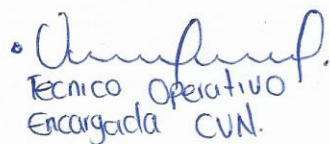 Tecnico Operativo
Encargada CVN.